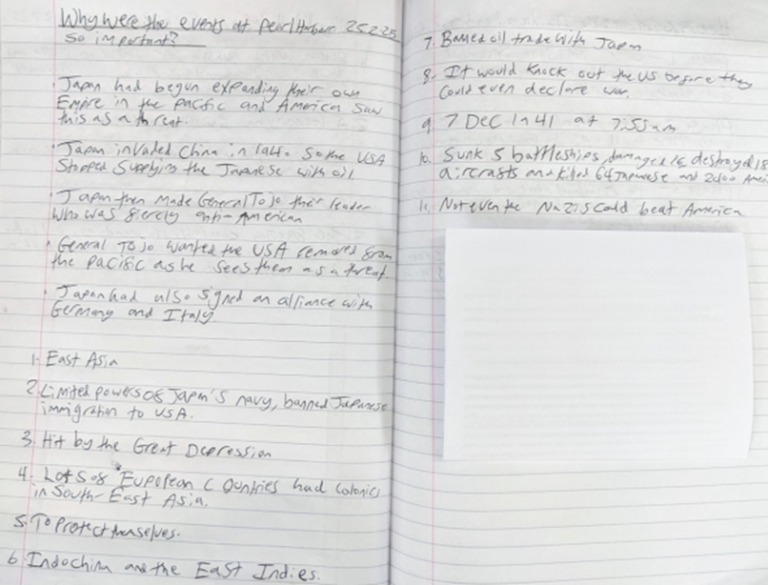 Why were the events at Pearl Harbour 25.2.25
so important?
· Japan had begun expanding their own
Empire in the pacific and America saw
this as a threat.
· Japan invaded China in So the USA
Stopped Supplying the Japanese with oil
· Japan then made General Tojo their leader
who was fiercly anti-American
· General Tojo wanted the USA removed from
the pacific as he sees them as a threat.
· Japan had also signed an alliance with
Germany and Italy
1. East Asia
2. Limited powers of Japan's navy, banned Japanese
immigration to USA.
3. Hit by the Great Depression
4. Lots of European Countries had colonies
in South-East Asia.
5. To Protect themselves.
6. Indochina and the East Indies.
7. Banned oil trade with Japan
8. It would knock out the US before they
could even declare war.
9. 7 Dec 1941 at 7:55am
10. Sunk 5 battleships, damaged 16, destroyed 18
aircrafts and killed 64 Japanese and 2400
11. Not even the Nazis could beat America